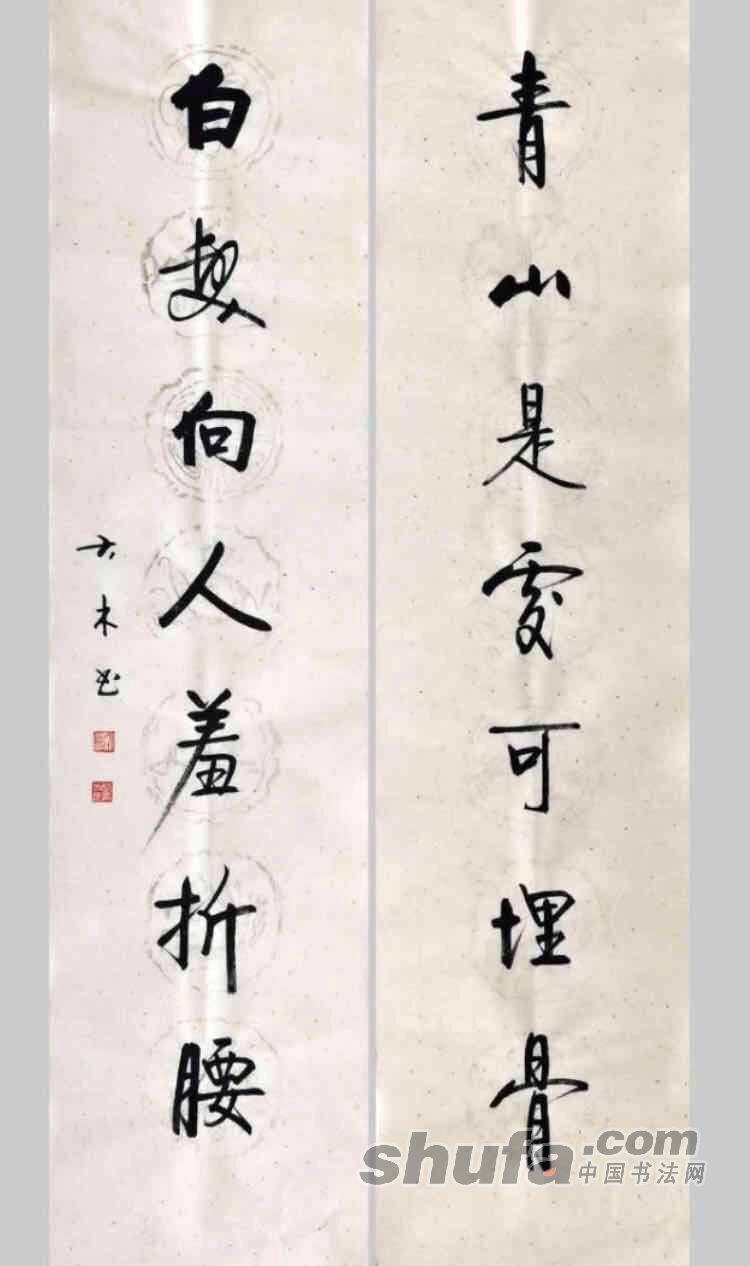 青山是處可埋骨
白髮向人羞折腰
大木书
shufa.com
中国书法网